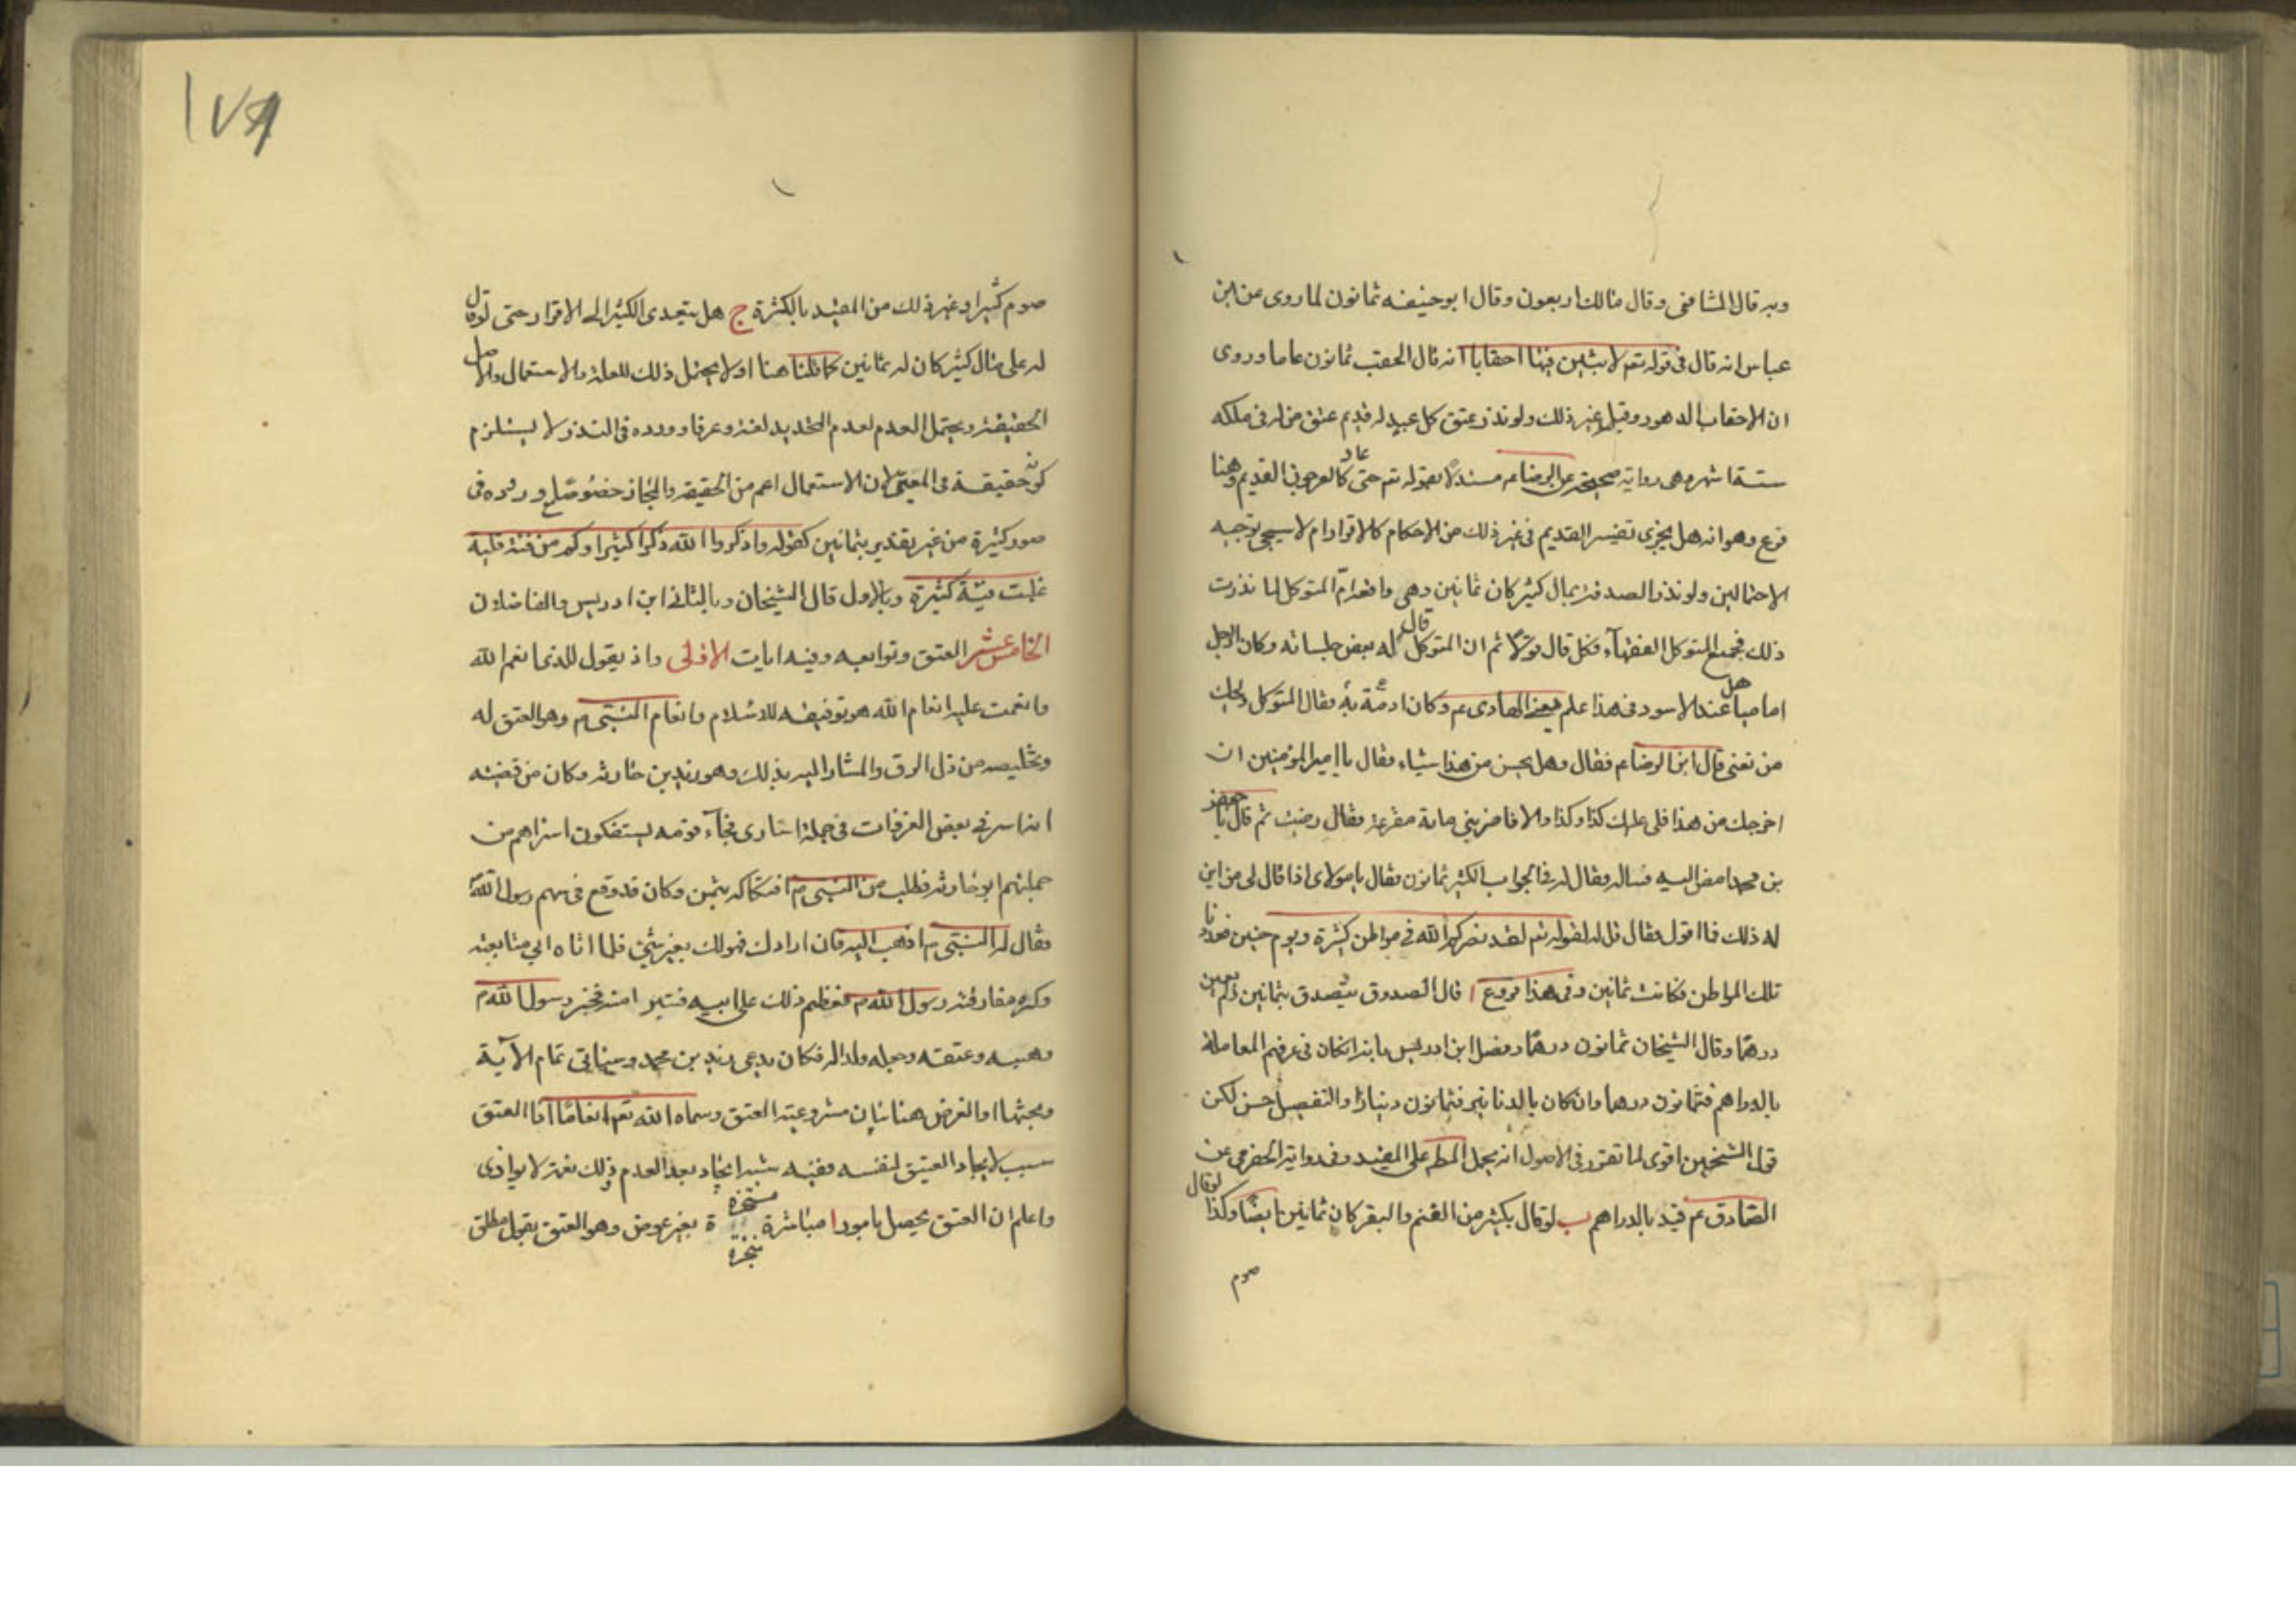 وبه قال الشافعى وقال مالك اربعون وقال ابو حنيفه ثمانون لما روى عن ابن
عباس انه قال فى قوله تعم لابثين فيها احقابا انه قال الحقب ثمانون عاما وروى
ان الاحقاب الدهور وقيل غير ذلك ولو نذر عتق كل عبد له قديم عتق من له فى ملكه
ستة اشهر وهى رواية صحيحة عن الرضا عم مستدلا بقوله تعم حتى عاد كالعرجون القديم وهنا
فرع وهو انه هل يجزى تفسير القديم فى غير ذلك من الاحكام كالاقرار ام لا سيجى توجيه
الاحتمالين ولو نذر الصدقة بمال كثير كان ثمانين وهى واقعة ام المتوكل لما نذرت
ذلك فجمع المتوكل الفقهاء فكل قال قولا ثم ان المتوكل قال له بعض جلسائه وكان الرجل
اماميا هل عند الاسود فى هذا علم يعنى الهادى عم وكان ادمة به فقال المتوكل ويحك
من تعنى قال ابن الرضا عم فقال وهل يحسن من هذا شيئا، فقال يا امير المؤمنين ان
اخرجك من هذا فلى عليك كذا وكذا والا فاضربنى ماية مقرعة فقال رضيت ثم قال يا جعفر
بن محمد امض اليه فساله فقال له فى الجواب الكثير ثمانون فقال يا مولاى اذا قال لى من اين
له ذلك فما اقول فقال قل له لقوله تعم لقد نصركم الله فى مواطن كثيرة ويوم حنين فعددنا
تلك المواطن فكانت ثمانين وفى هذا فروع ا قال الصدوق يتصدق بثمانين ولم يعين
درهما وقال الشيخان ثمانون درهما وفصل ابن ادريس بانه ان كان فى عرفهم المعاملة
بالدراهم فثمانون درهما وان كان بالدنانير فثمانون دينارا والتفصيل حسن لكن
قول الشيخين اقوى لما تقرر فى الاصول انه يحمل المطم على المقيد وفى رواية الحضرمى عن
الصادق عم قيد بالدراهم ب لو قال بكثير من الغنم والبقر كان ثمانين ايضا وكذا لو قال
صوم
١٧٩
صوم كثير او غير ذلك من المقيد بالكثرة ج هل يتعدى الكثير الى الاقرار حتى لو قال
له على مال كثير كان له ثمانين كما قلنا هنا او لا يحتمل ذلك للعلة والاستعمال والاصل
الحقيقة ويحتمل العدم لعدم التحديد لغة وعرفا ووروده فى النذر لا يستلزم
كونه حقيقة فى المعنى لان الاستعمال اعم من الحقيقة والمجاز خصوصا مع وروده فى
صور كثيرة من غير تقدير بثمانين كقوله واذكروا الله ذكرا كثيرا وكم من فئة قليلة
غلبت فئة كثيرة وبالاول قال الشيخان وبالثانى ابن ادريس والفاضلان
الخامس عشر العتق وتوابعه وفيه ايات الاولى واذ يقول للذى انعم الله
وانعمت عليه انعام الله هو توفيقه للاسلام وانعام النبى م وهو العتق له
وتخليصه من ذل الرق والمشار اليه بذلك وهو زيد بن حارثه وكان من قصته
انه اسر فى بعض الغزوات فى جملة اسارى فجاء قومه يستفكون اسراهم من
جملتهم ابو حارثه فطلب من النبى م افتكاكه بثمن وكان قد وقع فى سهم رسول الله
فقال له النبى م اذهب اليه فان ارادك فهو لك بغير شئ فلما اتاه ابى متابعته
وكره مفارقة رسول الله م فعظم ذلك على ابيه فتبرا منه فخير رسول الله م
وهبه وعتقه وجعله ولدا له فكان يدعى زيد بن محمد وسياتى تمام الاية
وبحثها او الغرض هنا بيان مشروعية العتق وسماه الله تعم انعاما اذا العتق
سبب لايجاد العتيق لنفسه ففيه شبه ايجاد بعد العدم وذلك نعمة لا يوازى
واعلم ان العتق يحصل بامور ا مباشرة منجزة بغير عوض وهو العتق بقول مطلق
منجزة